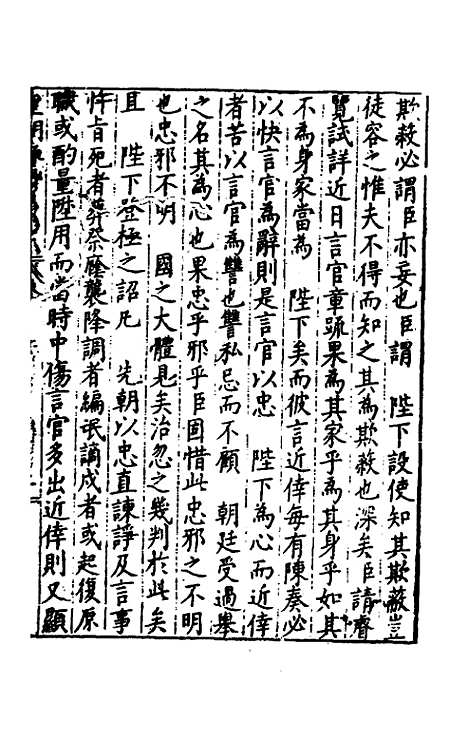 欺蔽必謂臣亦妄也臣謂 陛下設使知其欺蔽豈
徒容之惟夫不得而知之其為欺蔽也深矣臣請睿
覽試詳近日言官章疏果為其家乎為其身乎如其
不為身家當為 陛下矣而彼言近倖每有陳奏必
以快言官為辭則是言官以忠 陛下為心而近倖
者苦以言官為讐也讐私忌而不顧 朝廷受過舉
之名其為心也果忠乎邪乎臣固惜此忠邪之不明
也忠邪不明 國之大體見矣治忽之幾判於此矣
且 陛下登極之詔凡 先朝以忠直諫諍及言事
忤旨死者葬祭廕襲降調者編氓謫戍者或起復原
職或酌量陞用而當時中傷言官多出近倖則又顯